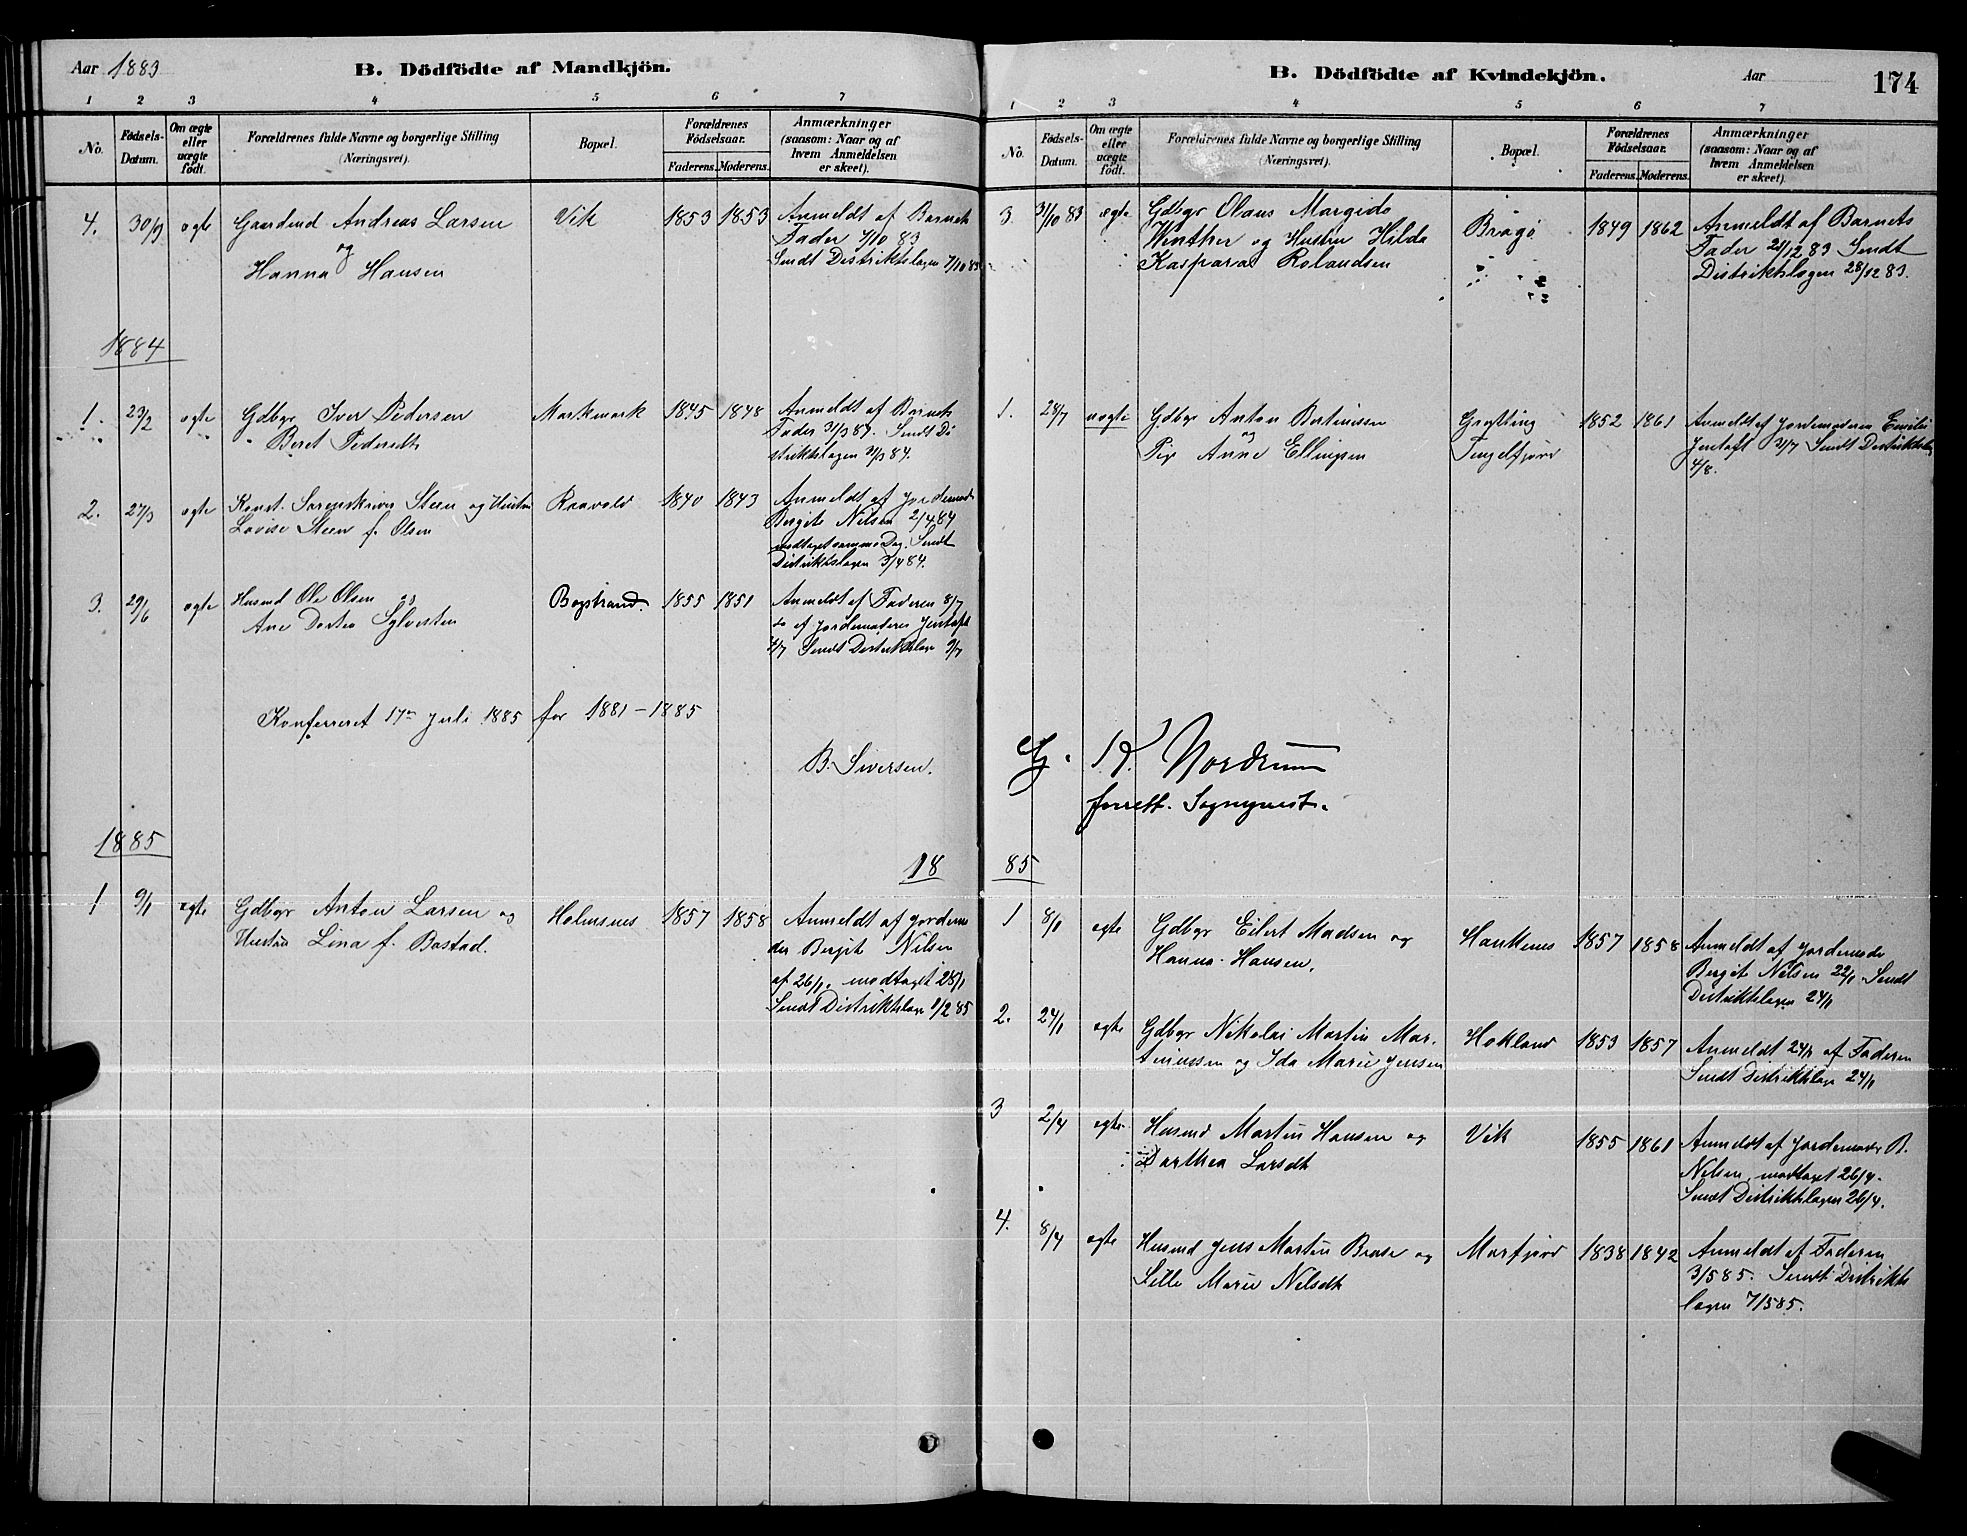 Aar 1883
B. Dödfödte af Mandkjön.
1 2 3 4 5 6 7
No.
Fødsels-Datum.
Om ægte eller uægte født.
Forældrenes fulde Navne og borgerlige Stilling
(Næringsvei).
Bopæl.
Forældrenes Fødselsaar.
Faderens. Moderens.
Anmærkninger
(saasom: Naar og af
hvem Anmeldelsen
er skeet).
4. 30/9 ægte Gaardmd Andreas Larsen Vik 1853 1853 Anmeldt af Barnets
og Fader 7/10 83
Hanna Hansen Sendt Distriktslægen 7/10 83
1884
1. 29/2 ægte Gdbgr Iver Pedersen Markmark 1845 1848 Anmeldt af Barnets
" Beret Pedersdtr Fader 31/3 84. Sendt Di
striktslægen 31/3 84.
2. 27/3 ægte Konst. Sorenskriver Steen og Hustru Raavold 1840 1843 Anmeldt af Jordemod
Lovise Steen f. Olsen Bergite Nilsen 2/4 84
modtaget samme Dag. Sendt
Distriktslægen 3/4 84.
3. 29/6 ægte Husmd Ole Olsen og Bogstrand. 1855 1851 Anmeldt af Faderen 8/7
Ane Dortea Sylvesten do af Jordemoderen Jentoft
Sendt Distriktslæge 9/7
Konfereret 17de Juli 1885 for 1881-1885
B. Siversen.
1885
18
1 9/1 ægte Gdbgr Anton Larsen og Holmsnes 1857 1858 Anmeldt af Jordemo
Hustru Lina f. Bostad. der Bergit Nilsen
af 26/1, modtaget 28/1
Sendt Distriktslæge 1/2 85
B. Dödfödte af Kvindekjön.
Aar
174
1 2 3 4 5 6 7
No.
Fødsels-Datum.
Om ægte eller uægte født.
Forældrenes fulde Navne og borgerlige Stilling
(Næringsvei).
Bopæl.
Forældrenes Fødselsaar.
Faderens. Moderens.
Anmærkninger
(saasom: Naar og af
hvem Anmeldelsen
er skeet).
3. 31/10 83 ægte Gdbgr Olaus Margido Bragø 1849 1862 Anmeldt af Barnets
Winther og Hustru Hilda Fader 21/12 83 Sendt
Kaspara Rolandsen Distriktslægen 28/12 83.
1. 28/7 uægte Gdbgr Anton Bertinussen Grytting 1852 1861 Anmeldt af Jordemoderen Emilie
og
Pig Anne Ellingsen Tengelfjord Jentoft 31/7 Sendt Distriktslæ
4/8.
G. K. Nordrum
forrett. Sogneprest.
85
1 8/1 ægte Gdbgr Eilert Madsen og Haukenes 1857 1858 Anmeldt af Jordemoder
Hanna Hansen. Bergit Nelsen 22/1 Sendt
Distriktslægen 24/1
2. 24/1 ægte Gdbgr Nikolai Martin Mar- Hokland 1853 1857 Anmeldt 24/1 af Faderen
tinussen og Ida Marie Jensen Sendt Distriktslæge 24/1
3 2/4 ægte Husmd Martin Hansen og Vik 1855 1861 Anmeldt af Jordemoder B.
Dorthea Larsdtr Nelsen, modtaget 26/4.
Sendt Distriktslægen 26/4.
4. 8/4 ægte Husmd Jens Martin Brose og Morfjord 1838 1842 Anmeldt af Faderen
Sille Marie Nilsdtr 3/5 85. Sendt Distrikts
lægen 7/5 85.